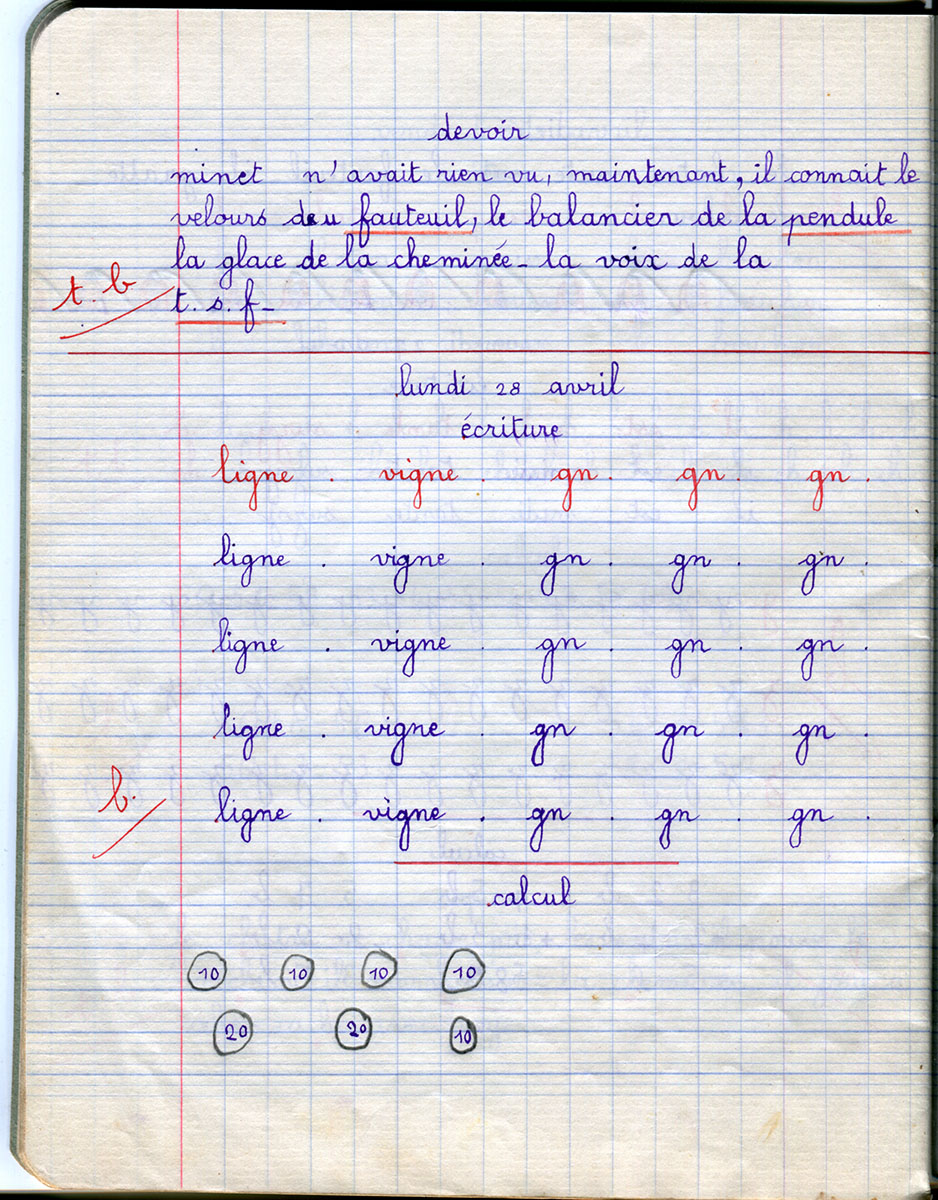 devoir
minet n'avait rien vu, maintenant, il connait le
velours du fauteuil, le balancier de la pendule
la glace de la cheminée - la voix de la
t. b
t. s. f -
lundi 28 avril
écriture
ligne . vigne . gn . gn . gn .
ligne . vigne . gn . gn . gn .
ligne . vigne . gn . gn . gn .
ligne . vigne . gn . gn . gn .
b.
ligne . vigne . gn . gn . gn .
calcul
10 10 10 10
20 20 10